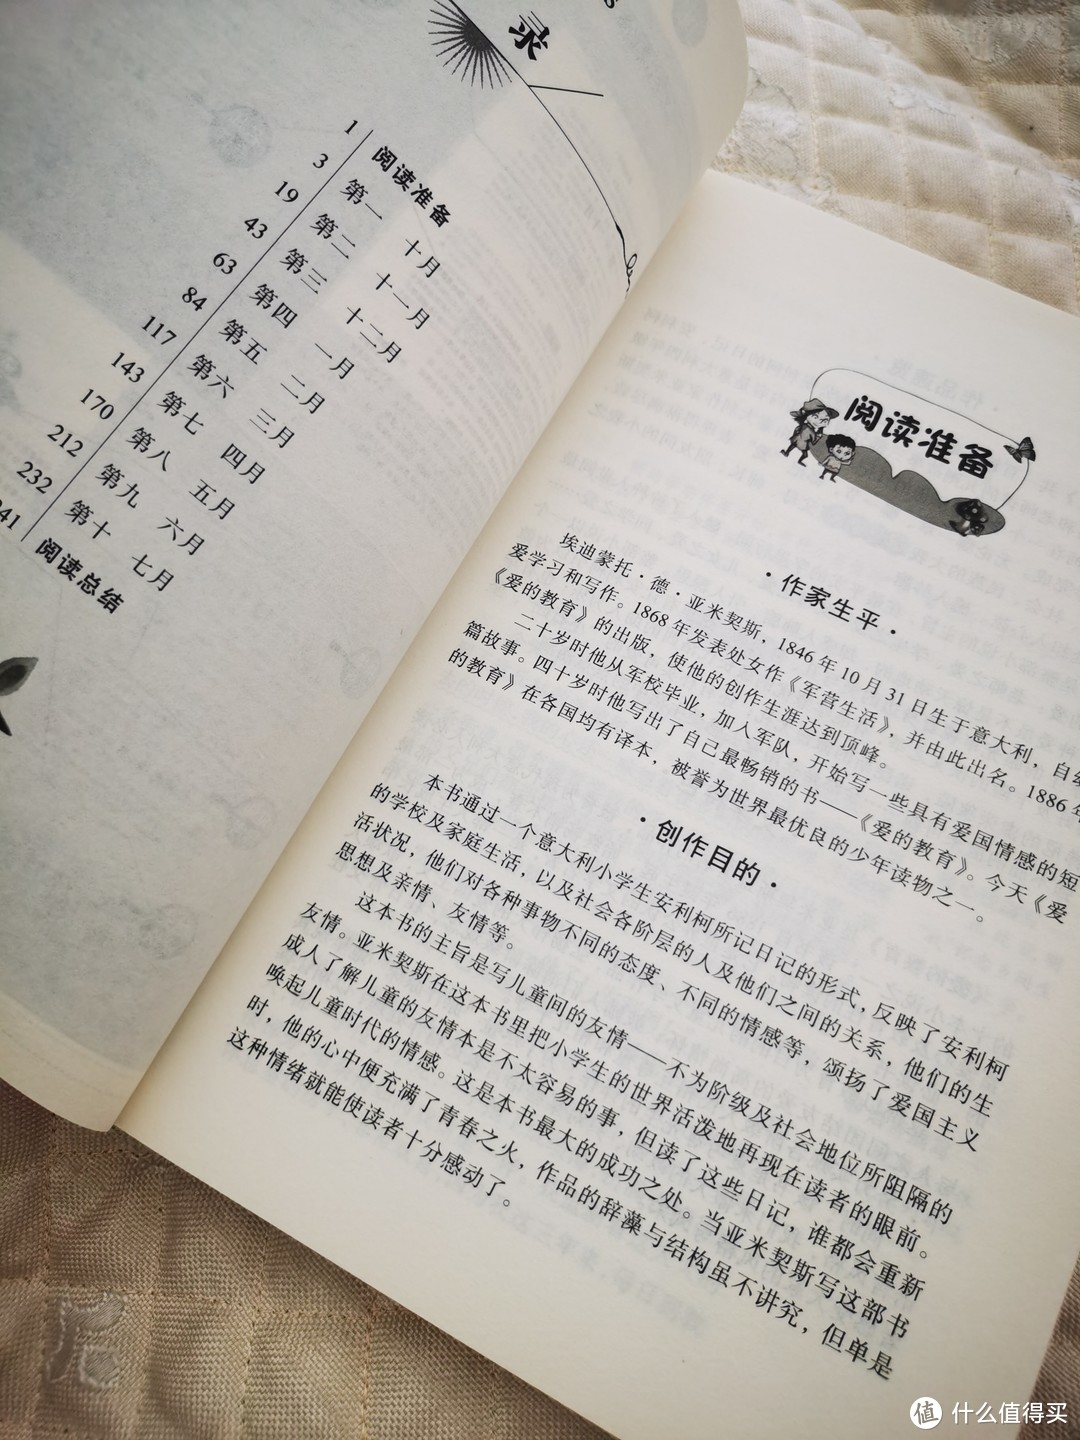 录
1 阅读准备
3 第一 十月
19 第二 十一月
43 第三 十二月
63 第四 一月
84 第五 二月
117 第六 三月
143 第七 四月
170 第八 五月
212 第九 六月
232 第十 七月
241 阅读总结
阅读准备
·作家生平·
埃迪蒙托·德·亚米契斯，1846年10月31日生于意大利，自幼
爱学习和写作。1868年发表处女作《军营生活》，并由此出名。1886年
《爱的教育》的出版，使他的创作生涯达到顶峰。
二十岁时他从军校毕业，加入军队，开始写一些具有爱国情感的短
篇故事。四十岁时他写出了自己最畅销的书——《爱的教育》。今天《爱
的教育》在各国均有译本，被誉为世界最优良的少年读物之一。
·创作目的·
本书通过一个意大利小学生安利柯所记日记的形式，反映了安利柯
的学校及家庭生活，以及社会各阶层的人及他们之间的关系，他们的生
活状况，他们对各种事物不同的态度、不同的情感等，颂扬了爱国主义
思想及亲情、友情等。
这本书的主旨是写儿童间的友情——不为阶级及社会地位所阻隔的
友情。亚米契斯在这本书里把小学生的世界活泼地再现在读者的眼前。
成人了解儿童的友情本是不太容易的事，但读了这些日记，谁都会重新
唤起儿童时代的情感。这是本书最大的成功之处。当亚米契斯写这部书
时，他的心中便充满了青春之火，作品的辞藻与结构虽不讲究，但单是
这种情绪就能使读者十分感动了。
值 什么值得买